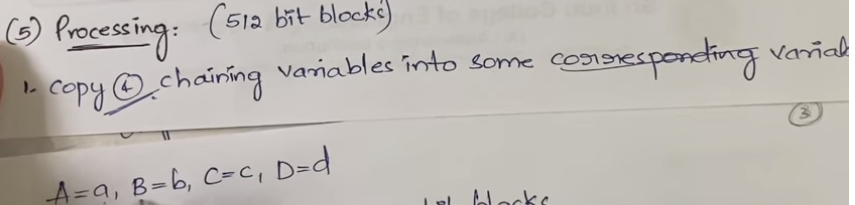 (5) Processing: (512 bit blocks)
1. Copy ④ chaining variables into some corresponding
③
A=a, B=b, C=c, D=d
blocks